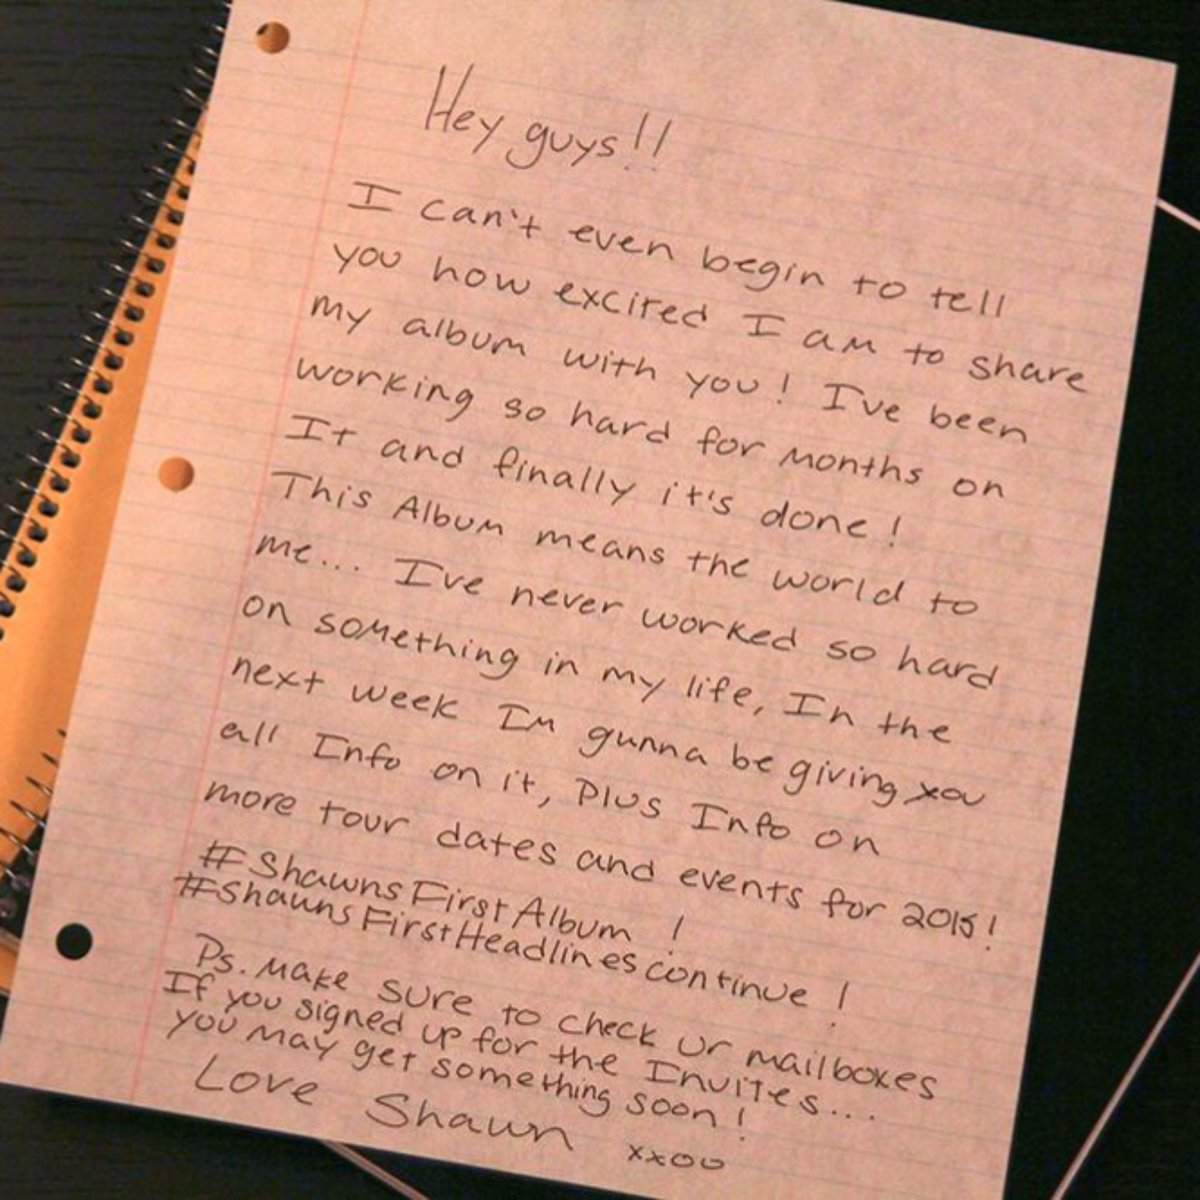 Hey guys!!
I can't even begin to tell
you how excited I am to share
my album with you! I've been
working so hard for months on
It and finally it's done!
This Album means the world to
me... I've never worked so hard
on something in my life, In the
next week Im gunna be giving you
all Info on it, Plus Info on
more tour dates and events for 2015!
#ShawnsFirstAlbum !
#ShawnsFirstHeadlinescontinue !
Ps. make sure to check ur mailboxes
If you signed up for the Invites...
you may get something soon!
Love Shawn xxoo